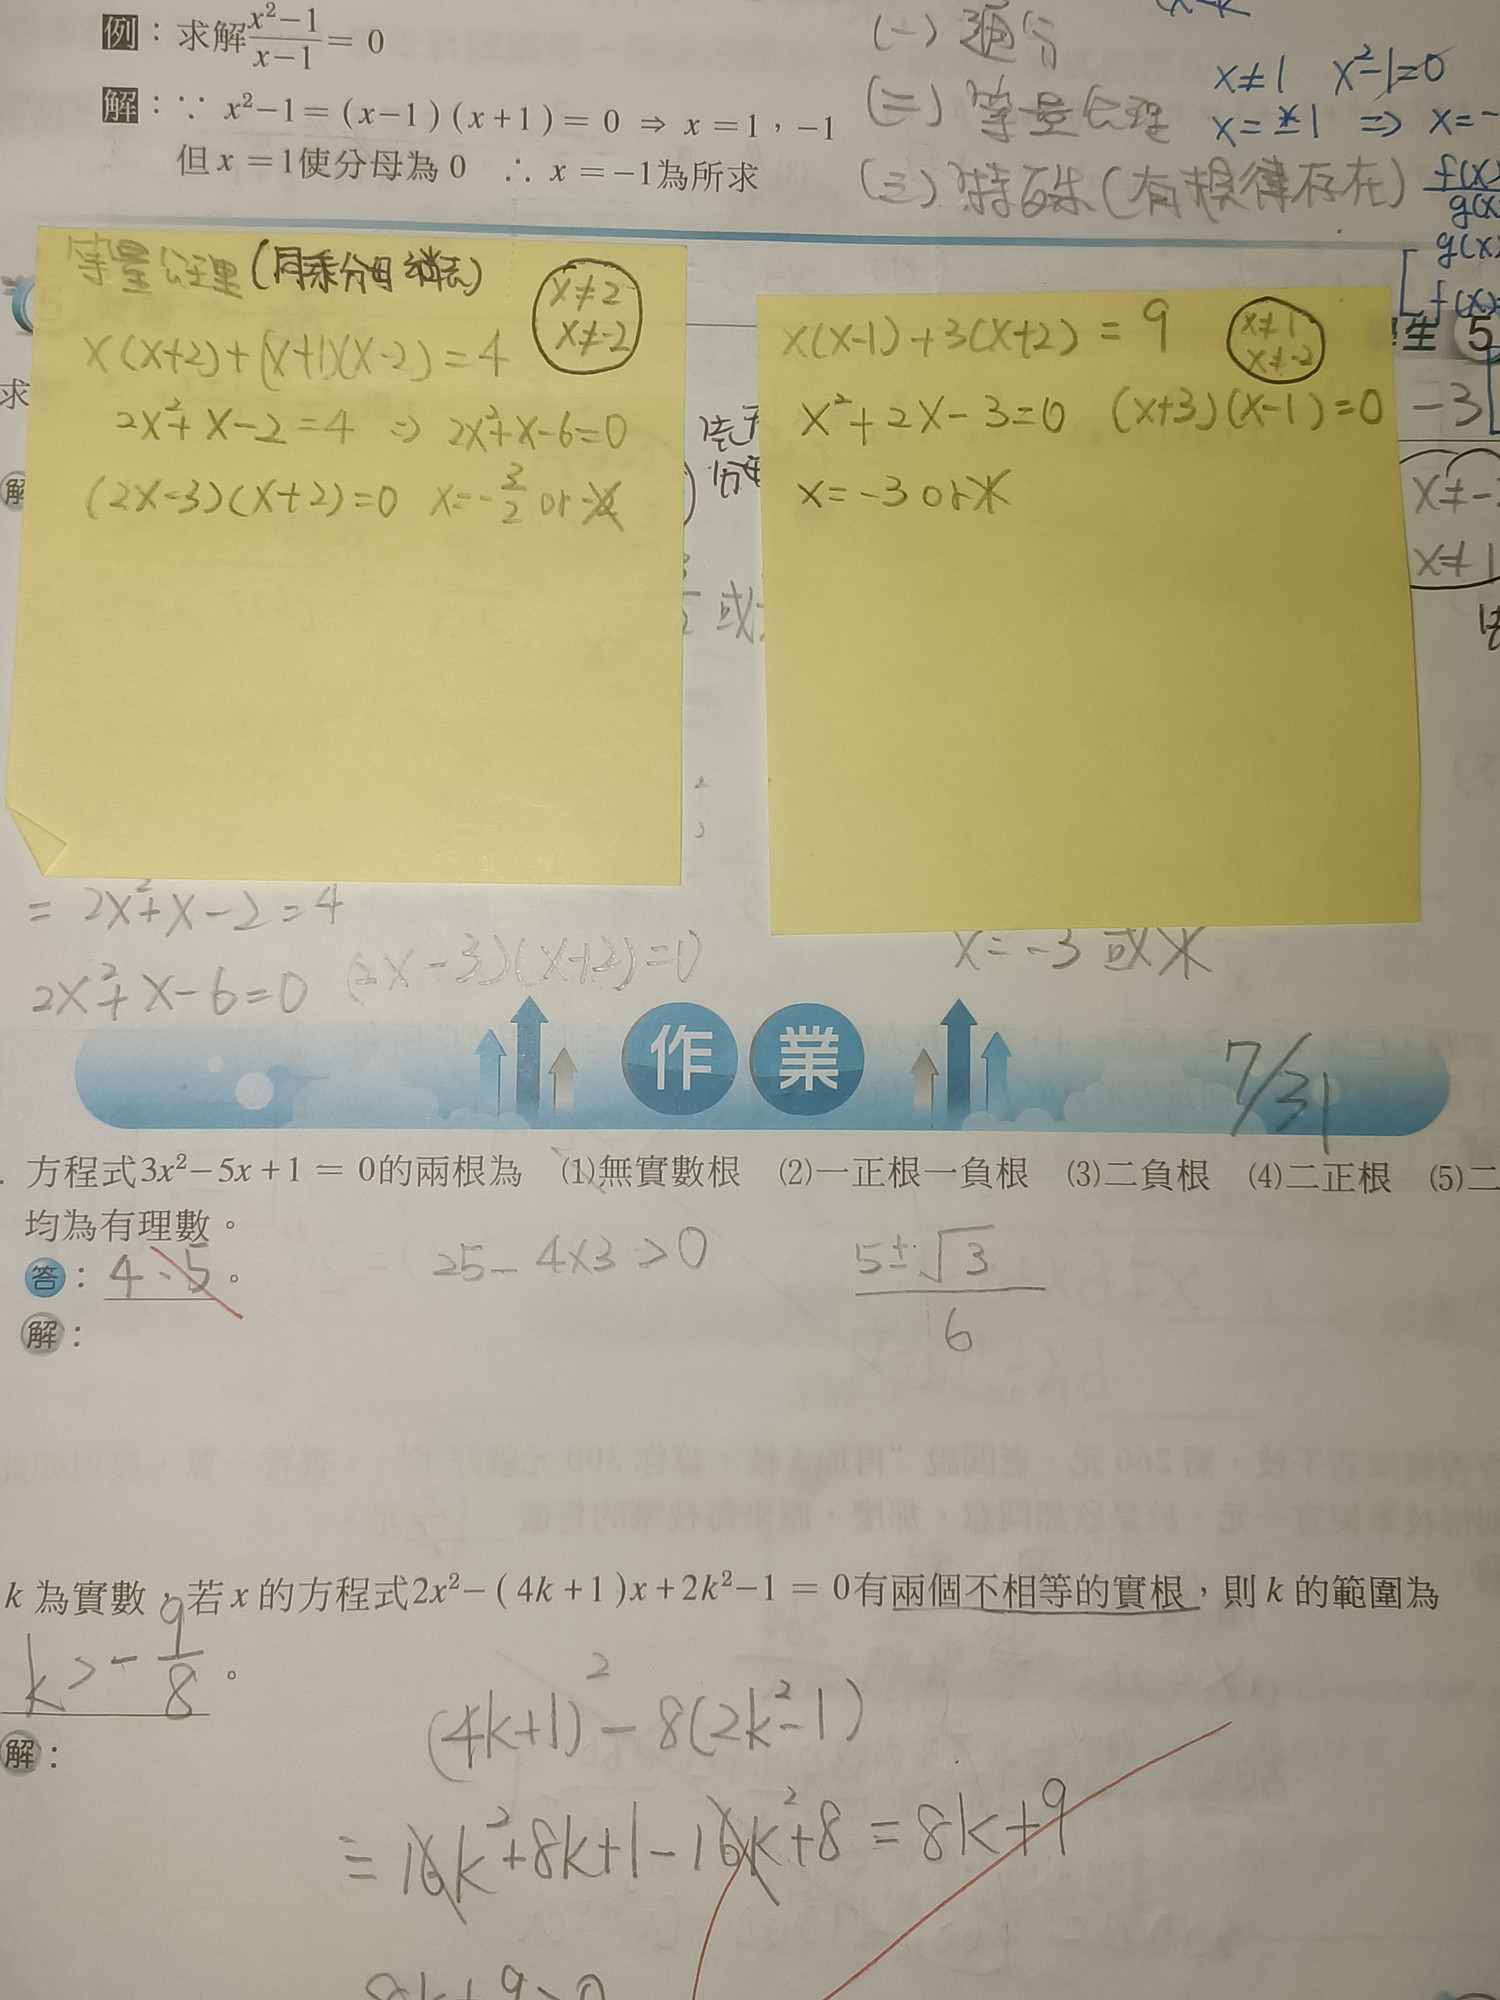 例：求解 x²−1/x−1 = 0
(一) 通分
x≠1 x²−1=0
解：∵ x²−1 = (x−1)(x+1) = 0 ⇒ x = 1，−1
(二) 等量公理
x=±1 ⇒ x=−
但 x = 1使分母為 0 ∴ x = −1為所求
(三) 特殊(有規律存在)
f(x)
g(x)
g(x)
f(x)
等量公理(同乘分母消去)
x≠2
x≠-2
x(x+2)+(x+1)(x-2)=4
2x²+x-2=4 ⇒ 2x²+x-6=0
(2x-3)(x+2)=0 x=-3/2 or
x(x-1)+3(x+2)=9
x≠1
x≠-2
x²+2x-3=0 (x+3)(x-1)=0
x=-3 or
生 5
求
解
-3
x≠-
x≠1
或
= 2x²+x-2=4
2x²+x-6=0 (2x-3)(x+2)=0
x=-3 或
作業
7/31
方程式3x²−5x+1 = 0的兩根為 (1)無實數根 (2)一正根一負根 (3)二負根 (4)二正根 (5)二
均為有理數。
答：4、5。
25-4×3>0
5±√3/6
解：
k 為實數，若 x 的方程式2x²−(4k+1)x+2k²−1 = 0有兩個不相等的實根，則 k 的範圍為
k>-9/8。
(4k+1)²-8(2k²-1)
解：
=16k²+8k+1-16k²+8=8k+9
8k+9>0